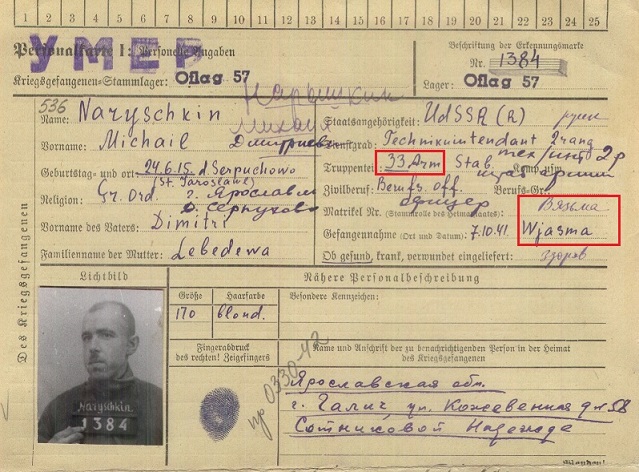 1 2 3 4 5 6 7 8 9 10 11 12 13 14 15 16 17 18 19 20 21 22 23 24 25
Personalkarte I: Personelle Angaben
УМЕР
Beschriftung der Erkennungsmarke
Nr. 1384
Kriegsgefangenen-Stammlager: Oflag 57
Lager: Oflag 57
Des Kriegsgefangenen
536
Name: Naryschkin
Нарышкин
Vorname: Michail
Михаил Дмитриевич
Geburtstag und -ort: 24.6.15. d. Serpuchowo
(St. Jaroslawl)
Religion: Gr. Ord. г. Ярославль
д. Серпухово
Vorname des Vaters: Dimitri
Familienname der Mutter: Lebedewa
Staatsangehörigkeit: UdSSR (R) русск
Dienstgrad: Technikintendant 2 rang
тех/инт 2 р
Truppenteil: 33. Arm Stab
штаб армии
Zivilberuf: Berufs. off. Berufs-Gr.
офицер
Matrikel Nr. (Stammrolle des Heimatstaates): Вязьма
Gefangennahme (Ort und Datum): 7.10.41. Wjasma
Ob gesund, krank, verwundet eingeliefert: здоров
Lichtbild
Nähere Personalbeschreibung
Größe Haarfarbe Besondere Kennzeichen:
170 blond.
Fingerabdruck
des rechten! Zeigefingers
Name und Anschrift der zu benachrichtigenden Person in der Heimat
des Kriegsgefangenen
пр 0330-42
Ярославская обл.
г. Галич ул. Кожевенная д. 58
Сотниковой Надежде
Naryschkin.
1384